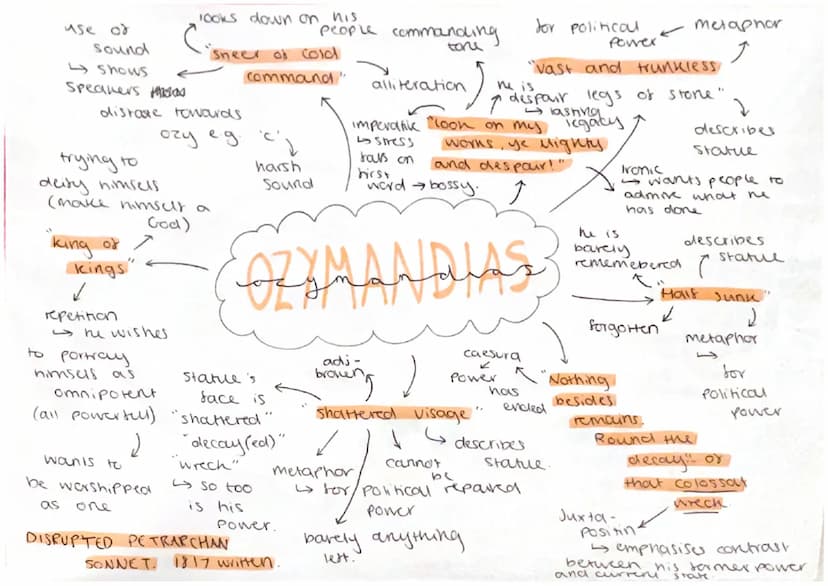 use of
sound
↳ shows
speakers
distaste towards
ozy e.g. 'c'
harsh
sound
looks down on his
people
"sneer of cold
command"
alliteration
commanding
tone
he is
despair
imperative
↳ stress
falls on
first
word → bossy.
"look on my
works, ye Mighty
and despair!"
Ironic
↳ wants people to
admire what he
has done
for political
power
metaphor
"vast and trunkless
legs of stone"
↳ lasting
legacy
describes
statue
trying to
deify himself
(make himself a
God)
"king of
kings"
repetition
↳ he wishes
to portray
himself as
omnipotent
(all powerful)
wants to
be worshipped
as one
OZYMANDIAS
ozymandias
he is
barely
rememebered
describes
statue
"Half sunk"
forgotten
metaphor
↳ for
political
power
adj-
broken
statue's
face is
"shattered"
"decay(ed)"
"wreck"
↳ so too
is his
power.
"shattered visage"
metaphor
↳ for political
power
cannot
be
repaired
↳ describes
statue.
barely anything
left.
caesura
↳ power
has
ended
"Nothing
besides
remains.
Round the
decay" of
that colossal
wreck.
Juxta-
positin
↳ emphasises contrast
between his former power
and current state
DISRUPTED PETRARCHAN
SONNET. 1817 written.